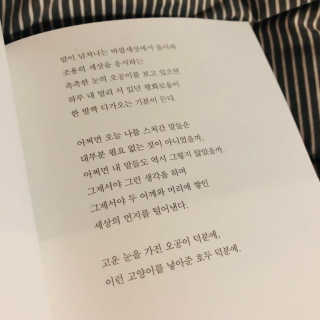 말이 넘쳐나는 바깥세상에서 돌아와
조용히 세상을 응시하는
촉촉한 눈의 오공이를 보고 있으면
하루 내 멀리 서 있던 평화로움이
한 발짝 다가오는 기분이 든다.
어쩌면 오늘 나를 스쳐간 말들은
대부분 필요 없는 것이 아니었을까.
어쩌면 내 말들도 역시 그렇지 않았을까.
그제서야 그런 생각을 하며
그제서야 두 어깨와 머리에 쌓인
세상의 먼지를 털어낸다.
고운 눈을 가진 오공이 덕분에,
이런 고양이를 낳아준 호두 덕분에.